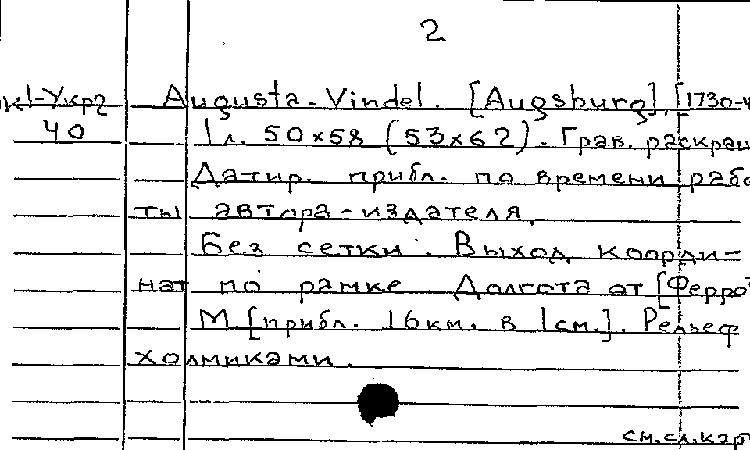 2
к1-Укр2 Augusta-Vindel. [Augsburg], [1730-4
40 1л. 50×58 (53×62). Грав. раскраш
Датир. прибл. по времени рабо
ты автора-издателя.
Без сетки. Выход коорди-
нат по рамке Долгота от [Ферро]
М [прибл. 16км. в 1см.]. Рельеф
холмиками.
см.сл.кар